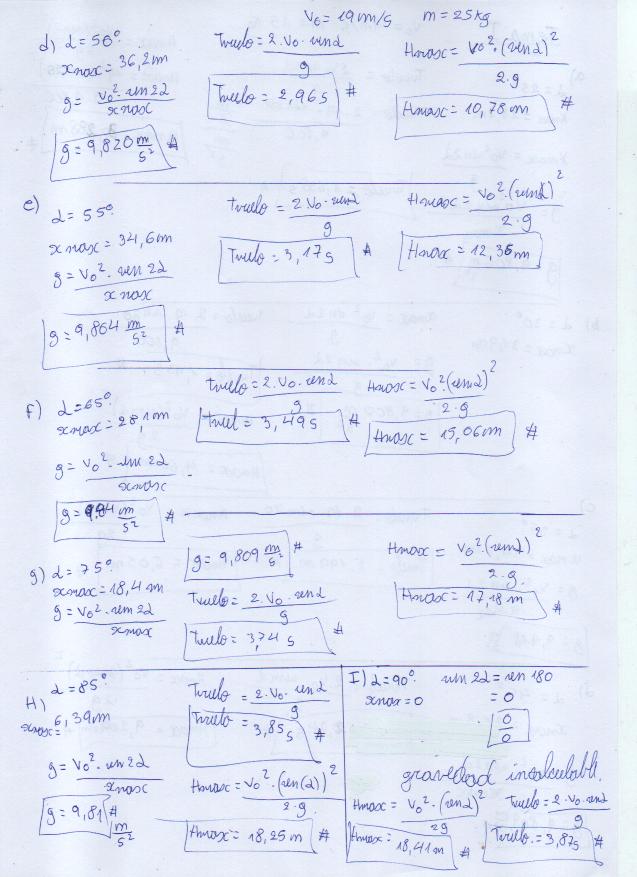 V₀ = 19 m/s   m = 25 kg
d) α = 50°.
xmax = 36,2m
g = V₀² · sen 2α / xmax
g = 9,820 m/s² #
Tvuelo = 2·V₀·senα / g
Tvuelo = 2,96s #
Hmax = V₀²·(senα)² / 2·g
Hmax = 10,78 m #
e) α = 55°.
xmax = 34,6m
g = V₀² · sen 2α / xmax
g = 9,864 m/s² #
Tvuelo = 2 V₀·senα / g
Tvuelo = 3,17s #
Hmax = V₀²·(senα)² / 2·g
Hmax = 12,36m
f) α = 65°
xmax = 28,1m
g = V₀² · sen 2α / xmax
g = 9.84 m/s² #
Tvuelo = 2·V₀·senα / g
Tvuel = 3,49s #
Hmax = V₀²·(senα)² / 2·g
Hmax = 15,06m #
g) α = 75°.
xmax = 18,4m
g = V₀² · sen 2α / xmax
g = 9,809 m/s² #
Tvuelo = 2·V₀·senα / g
Tvuelo = 3,74 s #
Hmax = V₀²·(senα)² / 2·g.
Hmax = 17,18 m #
H) α = 85°.
xmax = 6,39m
g = V₀² · sen 2α / xmax
g = 9,81 m/s² #
Tvuelo = 2·V₀·senα / g
Tvuelo = 3,85 s #
Hmax = V₀²·(sen(α))² / 2·g.
Hmax = 18,25 m #
I) α = 90°.   sen 2α = sen 180
xmax = 0   = 0
0/0
gravedad incalculable.
Hmax = V₀²·(senα)² / 2g
Hmax = 18,41 m #
Tvuelo = 2·V₀·senα / g
Tvuelo = 3,87s #